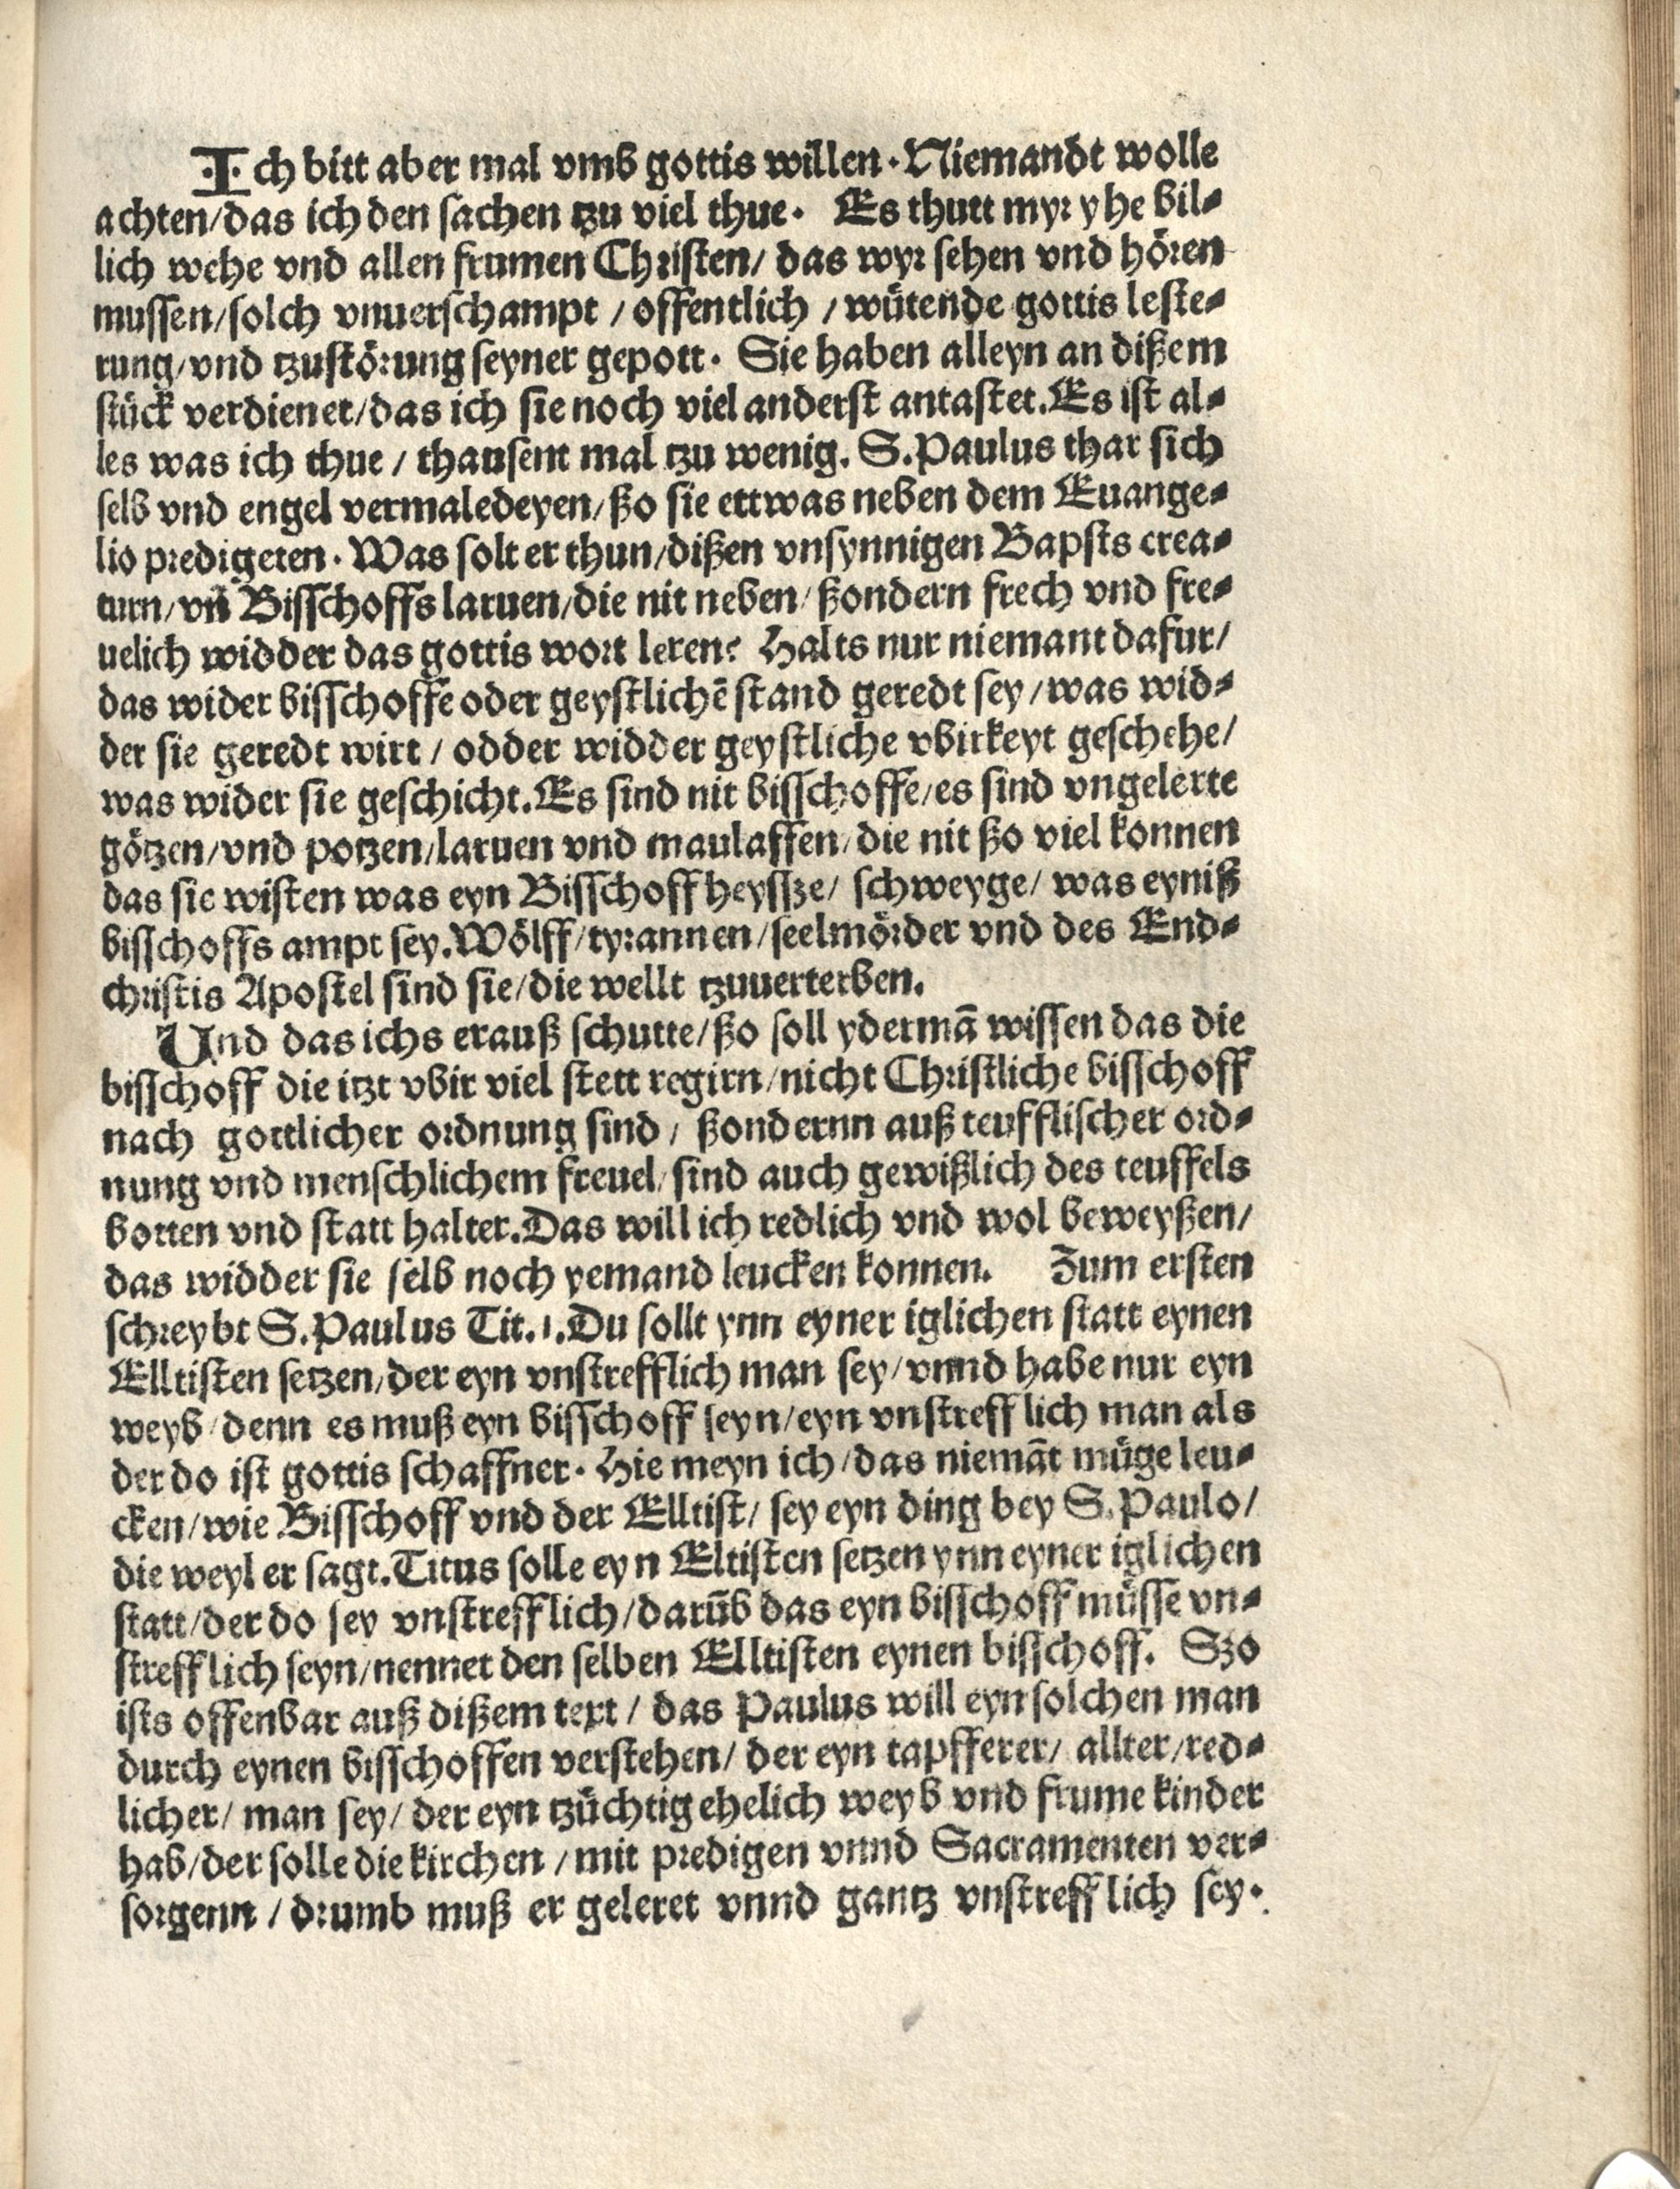 Ich bitt aber mal vmb gottis willen. Niemandt wolle
achten/das ich den sachen tzu viel thue. Es thutt myr yhe bil-
lich wehe vnd allen frumen Christen/ das wyr sehen vnd hören
mussen/solch vnuerschampt / offentlich / wütende gottis leste-
rung/vnd tzustörung seyner gepott. Sie haben alleyn an dißem
stück verdienet/das ich sie noch viel anderst antastet. Es ist al-
les was ich thue / thausent mal tzu wenig. S. Paulus thar sich
selb vnd engel vermaledeyen/ ßo sie ettwas neben dem Euange-
lio predigeten. Was solt er thun/dißen vnsynnigen Bapsts crea-
turn/vn̄ Bisschoffs laruen/die nit neben/ ßondern frech vnd fre-
uelich widder das gottis wort leren? Halts nur niemant dafur/
das wider bisschoffe oder geystlichē stand geredt sey/was wid-
der sie geredt wirt / odder widder geystliche vbirkeyt geschehe/
was wider sie geschicht. Es sind nit bisschoffe/es sind vngelerte
götzen/vnd potzen/laruen vnd maulaffen/die nit ßo viel konnen
das sie wisten was eyn Bisschoff heyssze/ schweyge/ was eyniß
bisschoffs ampt sey. Wölff/tyrannen/seelmörder vnd des End-
christis Apostel sind sie/die wellt tzuuerterben.
Und das ichs erauß schutte/ßo soll ydermā wissen das die
bisschoff die itzt vbir viel stett regirn/nicht Christliche bisschoff
nach gottlicher ordnung sind/ ßondernn auß teufflischer ord-
nung vnd menschlichem freuel/ sind auch gewißlich des teuffels
botten vnd statt halter. Das will ich redlich vnd wol beweyßen/
das widder sie selb noch yemand leucken konnen. Zum ersten
schreybt S. Paulus Tit. 1. Du sollt ynn eyner iglichen statt eynen
Elltisten setzen/der eyn vnstrefflich man sey/vnnd habe nur eyn
weyb/denn es muß eyn bisschoff seyn/eyn vnstrefflich man als
der do ist gottis schaffner. Hie meyn ich/das niemāt müge leu-
cken/wie Bisschoff vnd der Elltist/ sey eyn ding bey S. Paulo/
die weyl er sagt. Titus solle eyn Eltisten setzen ynn eyner iglichen
statt/der do sey vnstrefflich/darūb das eyn bisschoff müsse vn-
strefflich seyn/nennet den selben Elltisten eynen bisschoff. Szo
ists offenbar auß dißem text / das Paulus will eyn solchen man
durch eynen bisschoffen verstehen/ der eyn tapfferer/ allter/red-
licher/ man sey/ der eyn tzüchtig ehelich weyb vnd frume kinder
hab/der solle die kirchen / mit predigen vnnd Sacramenten ver-
sorgenn / drumb muß er geleret vnnd gantz vnstrefflich sey.